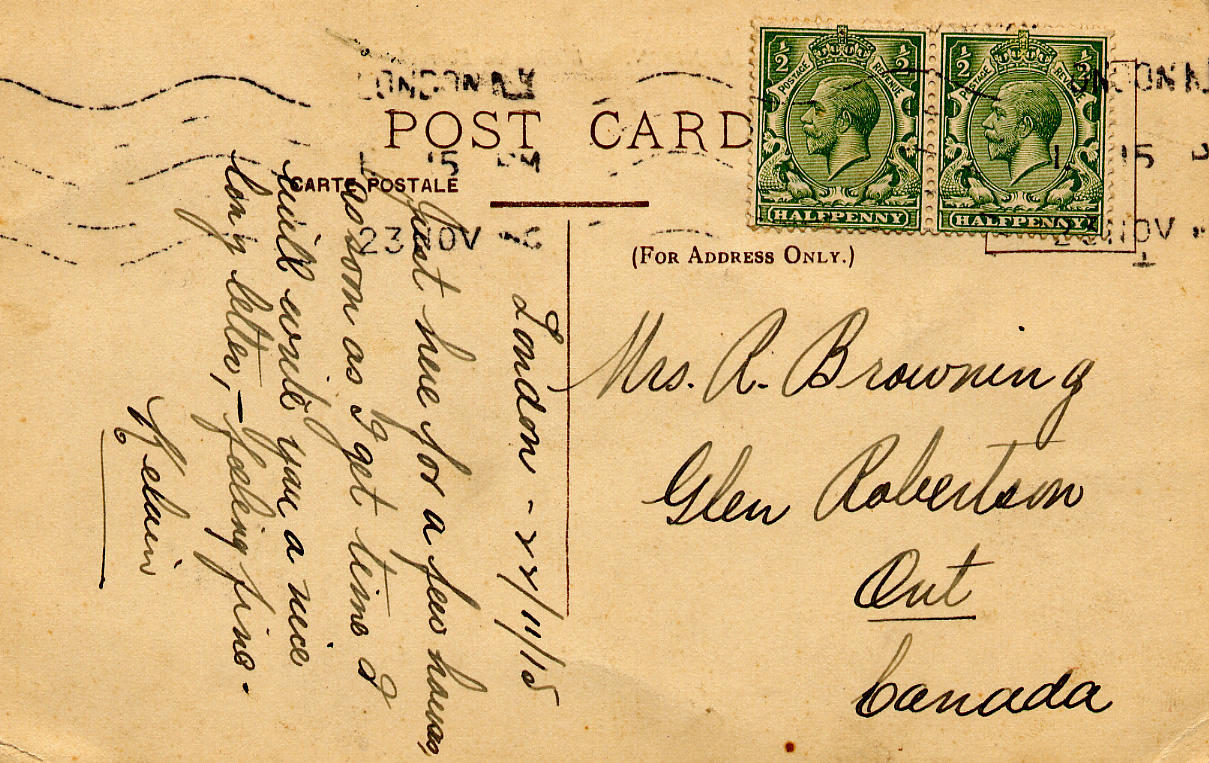 POST CARD
CARTE POSTALE
(FOR ADDRESS ONLY.)
½ ½
POSTAGE REVENUE
HALFPENNY
½ ½
POSTAGE REVENUE
HALFPENNY
LONDON N
15 PM
23 NOV
ONDON N
15 P
NOV
1
London - 22/11/15
Just here for a few hours,
as soon as I get time I
will write you a nice
long letter, - feeling fine.
Mrs. R. Browning
Glen Robertson
Ont
Canada